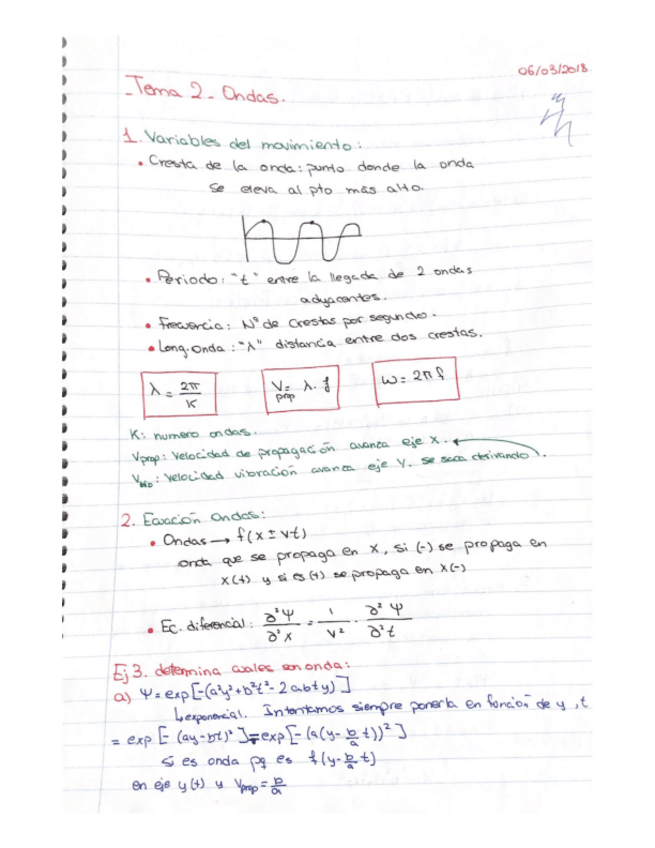 06/03/2018
-Tema 2- Ondas.
1. Variables del movimiento:
• Cresta de la onda: punto donde la onda
se eleva al pto más alto.
• Periodo: "t" entre la llegada de 2 ondas
adyacentes.
• Frecuencia: Nº de crestas por segundo.
• Long.onda: "λ" distancia entre dos crestas.
λ = 2π/K
Vprop = λ · f
ω = 2π f
K: numero ondas.
Vprop: Velocidad de propagación avanza eje x.
Vvib: Velocidad vibración avanza eje Y. se saca derivando).
2. Ecuación Ondas:
• Ondas → f(x ± vt)
onda que se propaga en x, si (-) se propaga en
x(+) y si es (+) se propaga en x(-)
• Ec. diferencial: ∂²Ψ/∂²x = 1/v² · ∂²Ψ/∂²t
Ej 3. determina cuales son onda:
a) Ψ = exp[-(a²y²+b²t²-2abty)]
↳exponencial. Intentamos siempre ponerla en función de y, t
= exp[-(ay-bt)²] = exp[-(a(y-b/a t))²]
si es onda pq es f(y-b/a t)
en eje y(+) y Vprop = b/a